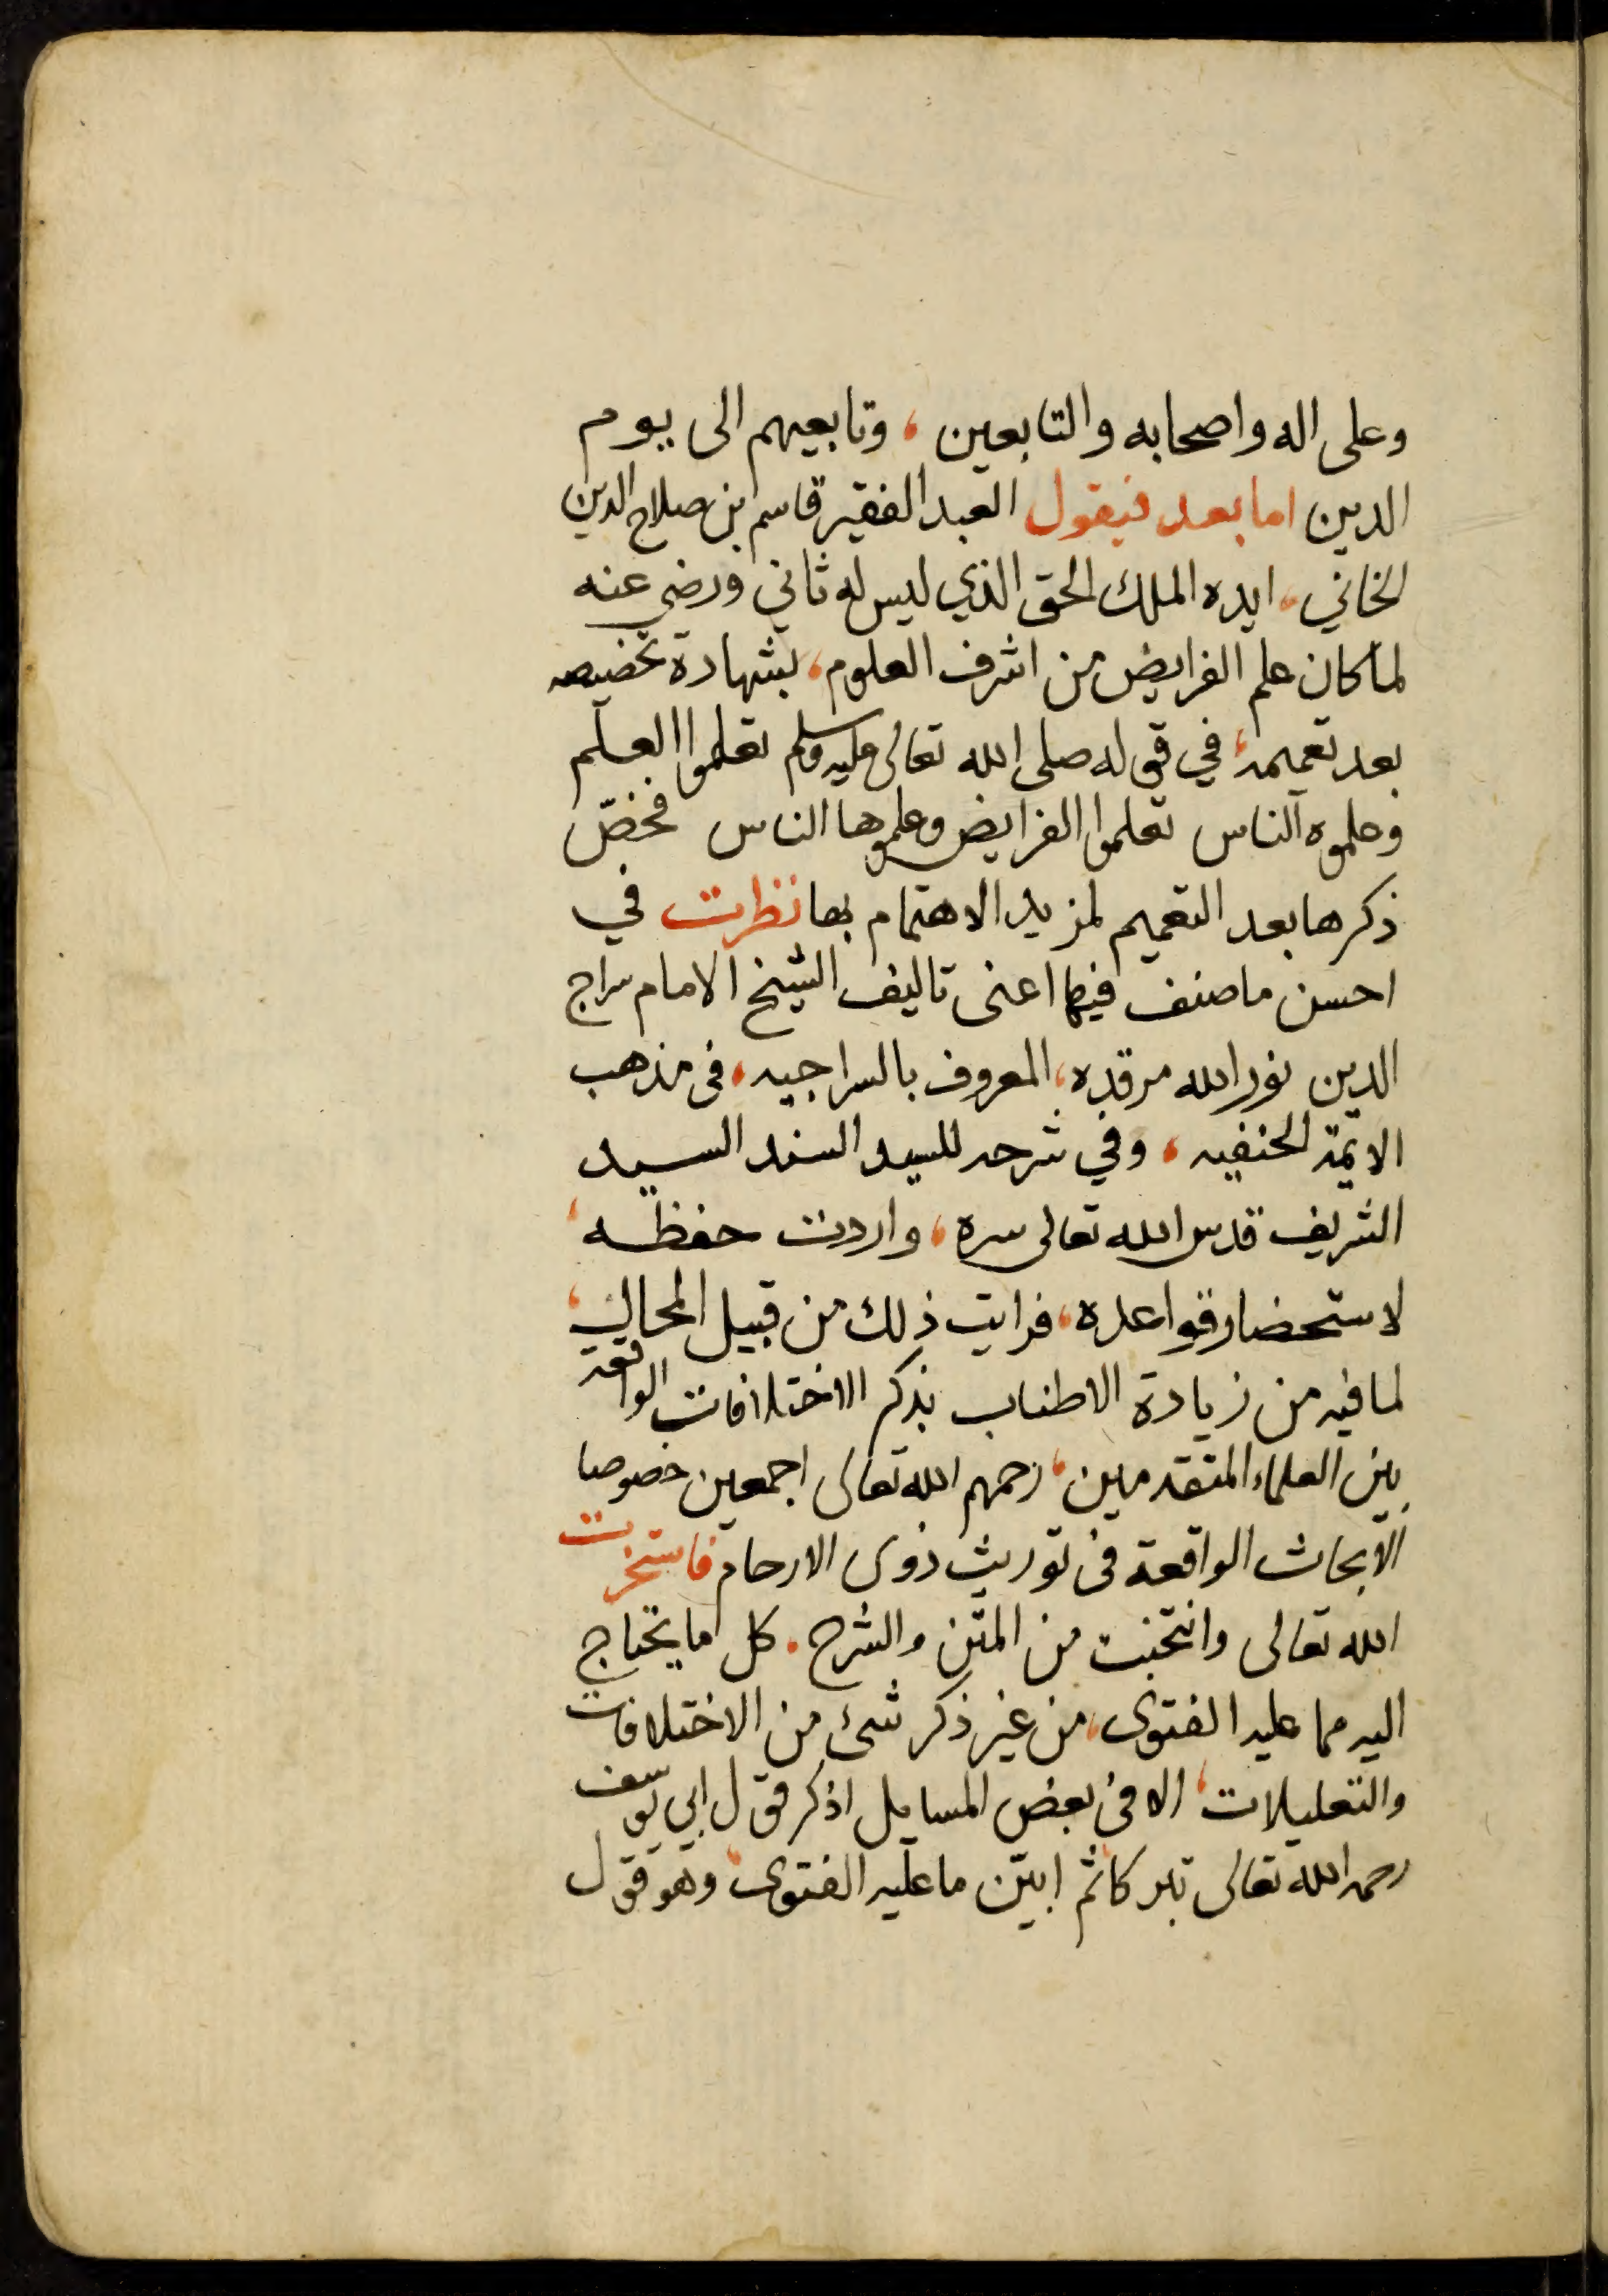 وعلى اله واصحابه والتابعين، وتابعيهم الى يوم
الدين اما بعد فيقول العبد الفقير قاسم بن صلاح الدين
الخاني، ايده الملك الحق الذي ليس له ثاني ورضي عنه
لما كان علم الفرايض من اشرف العلوم، بشهادة تخصيصه
بعد تعميمه، في قوله صلى الله تعالى عليه وسلم تعلموا العلم
وعلموه الناس تعلموا الفرايض وعلموها الناس فخصّ
ذكرها بعد التعميم لمزيد الاهتمام بها نظرت في
احسن ما صنف فيها اعنى تاليف الشيخ الامام سراج
الدين نور الله مرقده، المعروف بالسراجيه، فى مذهب
الائمة الحنفيه، وفي شرحه للسيد السند السيد
الشريف قدس الله تعالى سره، واردت حفظه،
لاستحضار قواعده، فرايت ذلك من قبيل المحال،
لما فيه من زيادة الاطناب بذكر الاختلافات الواقعة
بين العلماء المتقدمين، رحمهم الله تعالى اجمعين خصوصا
الابحاث الواقعة فى توريث ذوى الارحام فاستخرت
الله تعالى وانتخبت من المتن والشرح. كل ما يحتاج
اليه مما عليه الفتوى، من غير ذكر شئ من الاختلافات
والتعليلات، الا فى بعض المسايل اذكر قول ابي يوسف
رحمه الله تعالى تبركا ثم ابيّن ما عليه الفتوى، وهو قول